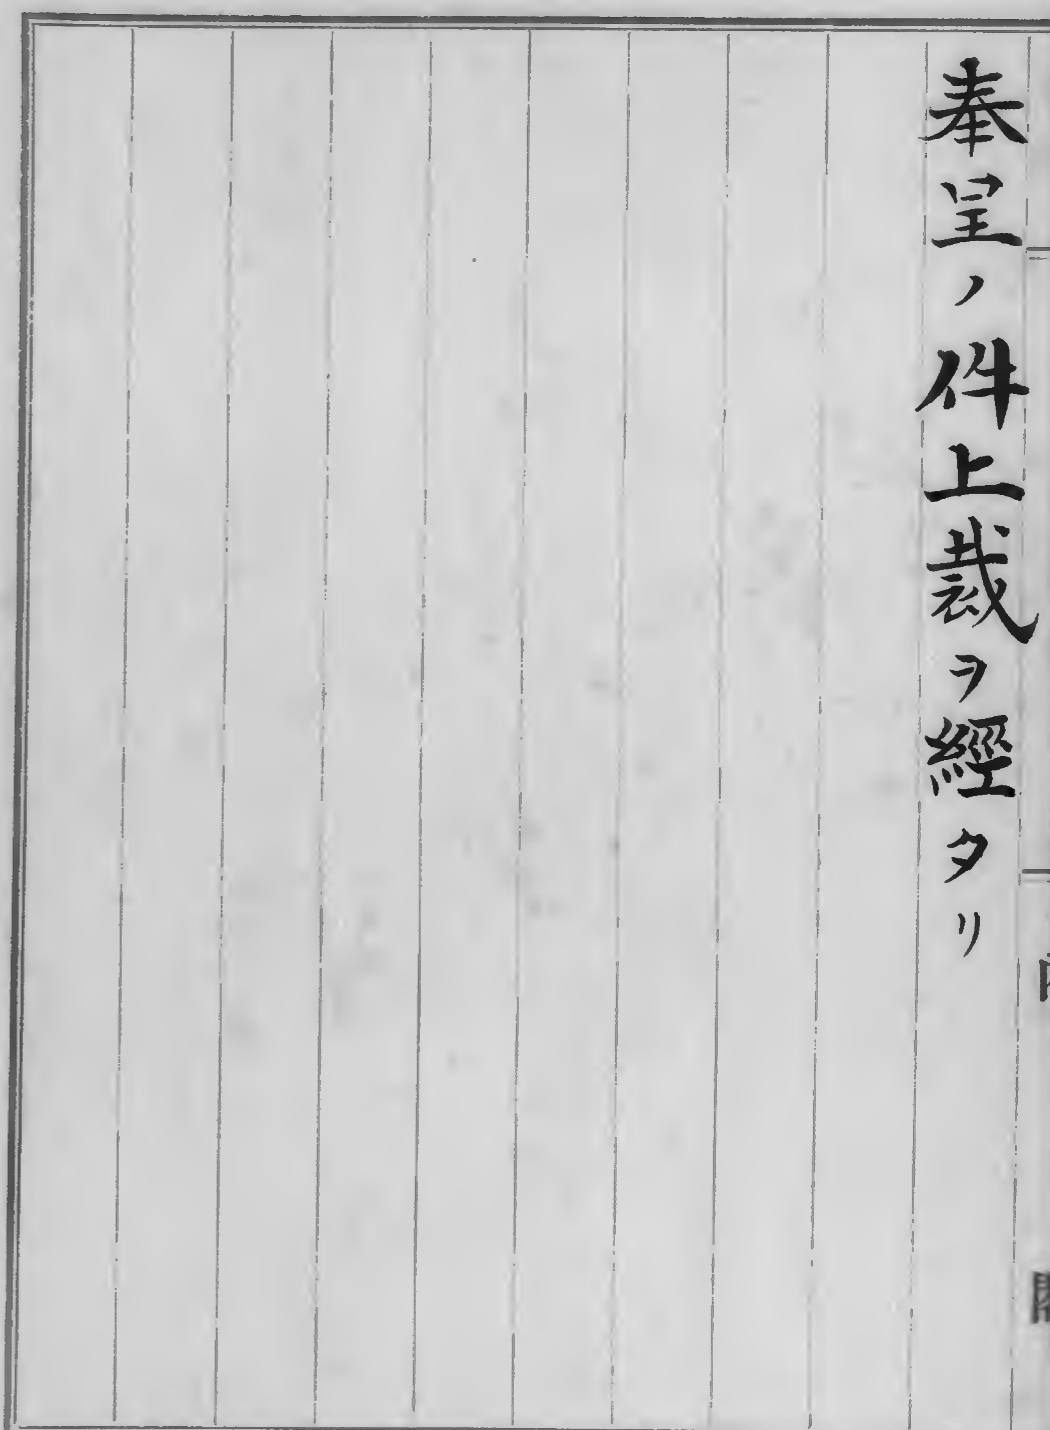 奉呈ノ件上裁ヲ經タリ